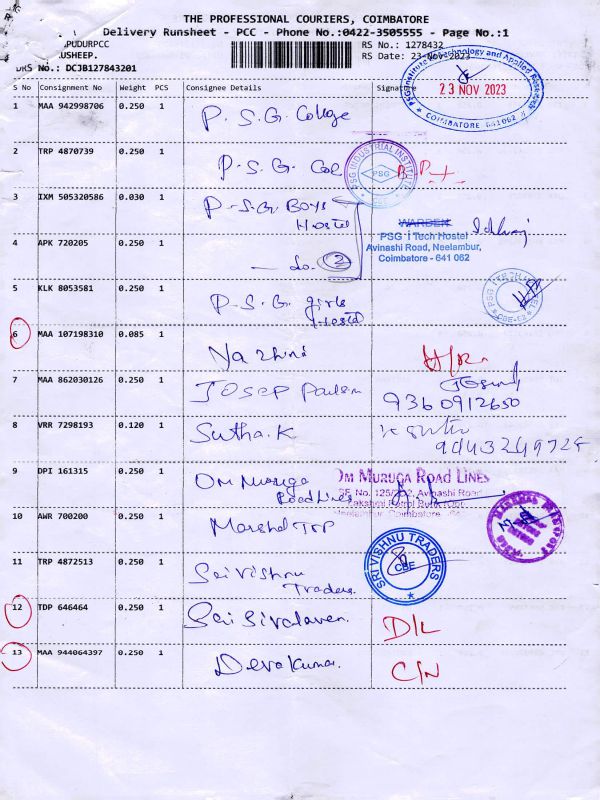 THE PROFESSIONAL COURIERS, COIMBATORE
Delivery Runsheet - PCC - Phone No.:0422-3505555 - Page No.:1
PUDURPCC
RS No.: 1278432
RUSHEEP.
RS Date: 23-Nov-2023
DRS No.: DCJB127843201
S No Consignment No Weight PCS Consignee Details Signature
PSG Institute of Technology and Applied Research
23 NOV 2023
COIMBATORE 641062
1 MAA 942998706 0.250 1 P.S.G. College
2 TRP 4870739 0.250 1 P.S.G. Col
PSG INDUSTRIAL INSTITUTE
PSG
CBE
3 IXM 505320586 0.030 1 P.S.G. Boys
Hostel
WARDEN
PSG i Tech Hostel
Avinashi Road, Neelambur,
Coimbatore - 641 062
4 APK 720205 0.250 1 Do. 2
5 KLK 8053581 0.250 1 P.S.G. girls
Hostel
6 MAA 107198310 0.085 1
7 MAA 862030126 0.250 1 Josep
9360912650
8 VRR 7298193 0.120 1 Sutha.K
9443249724
9 DPI 161315 0.250 1 Om Muruga
Road Lines
OM MURUGA ROAD LINES
No. 125/2, Avinashi Road
10 AWR 700200 0.250 1 Marshal TRP
11 TRP 4872513 0.250 1 Sri Vishnu
Traders.
SRI VISHNU TRADERS
CBE
12 TDP 646464 0.250 1 D/L
13 MAA 944064397 0.250 1 Devakumar. C/N